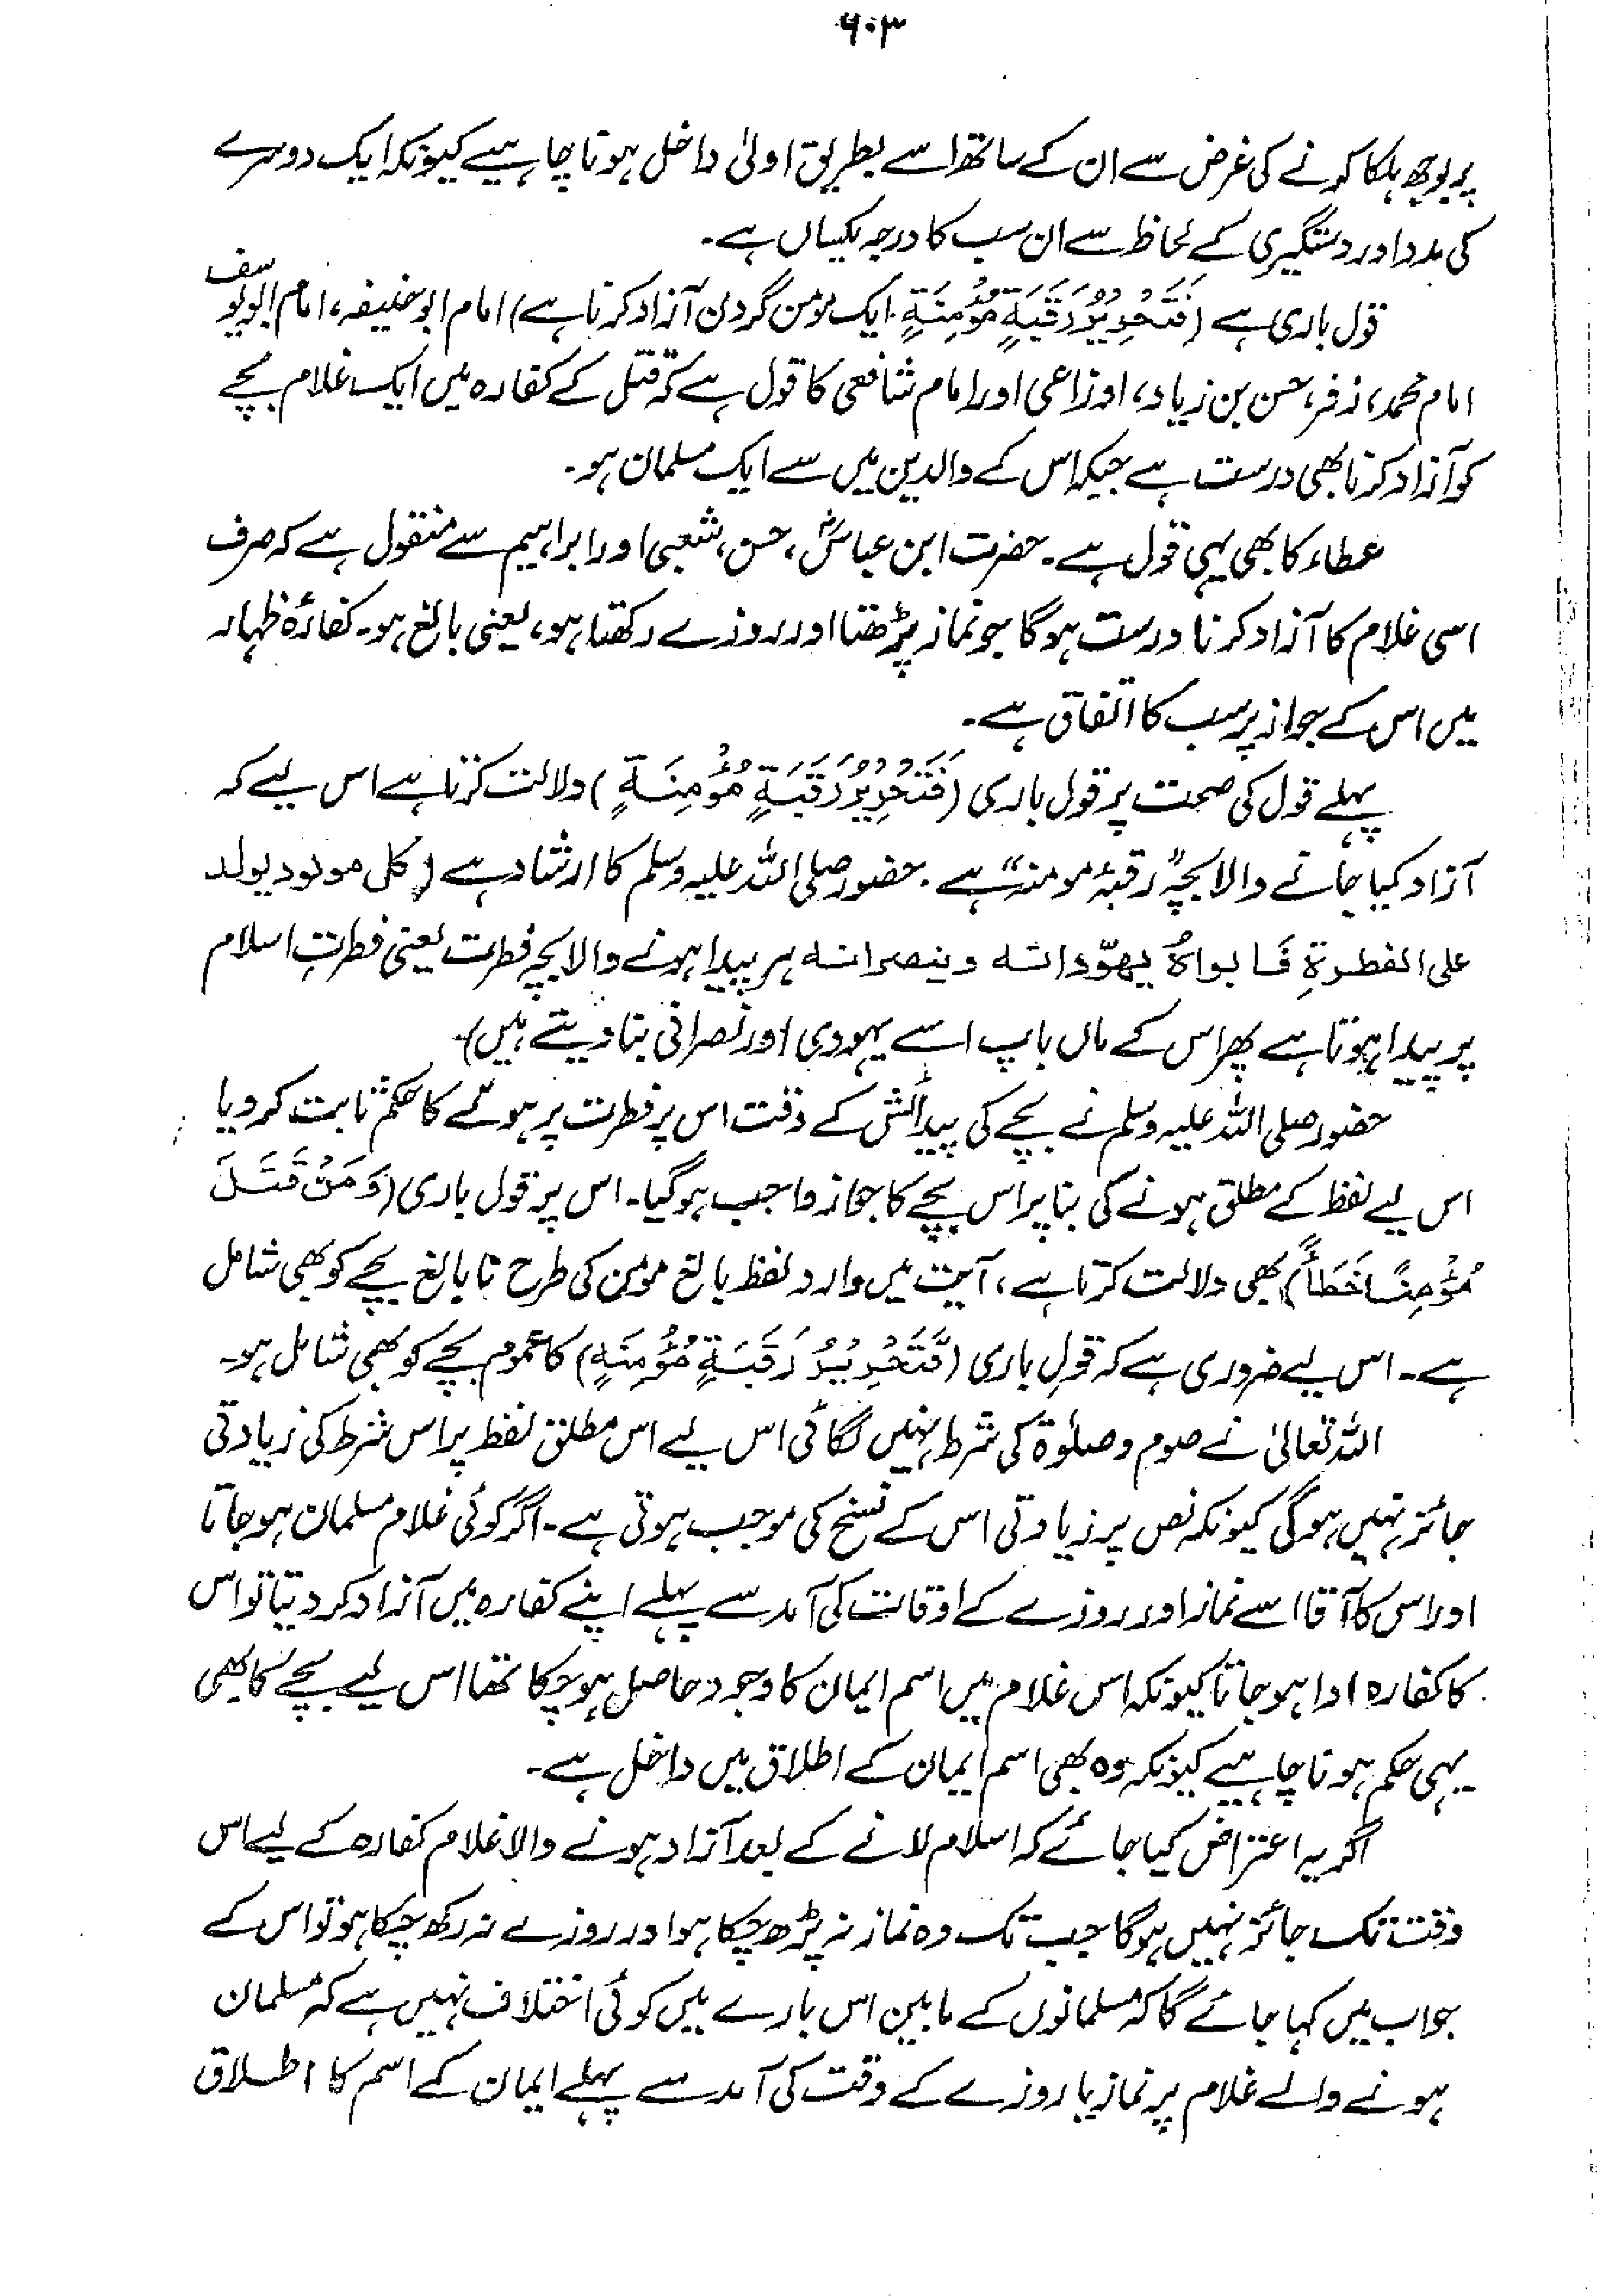 ۶۰۳
پر بوجھ ہلکا کرنے کی غرض سے ان کے ساتھ اسے بطریق اولیٰ داخل ہونا چاہیے کیونکہ ایک دوسرے
کی مدد اور دستگیری کے لحاظ سے ان سب کا درجہ یکساں ہے۔
قول باری ہے (فَتَحْرِيْرُ رَقَبَةٍ مُّؤْمِنَةٍ۔ ایک مومن گردن آزاد کرنا ہے) امام ابوحنیفہ، امام ابویوسف
امام محمد، زفر، حسن بن زیاد، اوزاعی اور امام شافعی کا قول ہے کہ قتل کے کفارہ میں ایک غلام بچے
کو آزاد کرنا بھی درست ہے جبکہ اس کے والدین میں سے ایک مسلمان ہو۔
عطاء کا بھی یہی قول ہے۔ حضرت ابن عباسؓ، حسن، شعبی اور ابراہیم سے منقول ہے کہ صرف
اسی غلام کا آزاد کرنا درست ہوگا جو نماز پڑھتا اور روزے رکھتا ہو، یعنی بالغ ہو۔ کفارۂ ظہار
میں اس کے جواز پر سب کا اتفاق ہے۔
پہلے قول کی صحت پر قول باری (فَتَحْرِيْرُ رَقَبَةٍ مُّؤْمِنَةٍ) دلالت کرتا ہے اس لیے کہ
آزاد کیا جانے والا بچہ "رقبۂ مومنہ" ہے۔ حضور صلی اللہ علیہ وسلم کا ارشاد ہے (کل مولود یولد
علی الفطرۃِ فَابواہُ یہوّدانہ وینصرانہ ہر پیدا ہونے والا بچہ فطرت یعنی فطرتِ اسلام
پر پیدا ہوتا ہے پھر اس کے ماں باپ اسے یہودی اور نصرانی بنا دیتے ہیں)۔
حضور صلی اللہ علیہ وسلم نے بچے کی پیدائش کے وقت اس پر فطرت پر ہونے کا حکم ثابت کر دیا
اس لیے لفظ کے مطلق ہونے کی بنا پر اس بچے کا جواز واجب ہوگیا۔ اس پر قول باری (وَمَنْ قَتَلَ
مُؤْمِنًا خَطَأً) بھی دلالت کرتا ہے، آیت میں وارد لفظ بالغ مومن کی طرح نابالغ بچے کو بھی شامل
ہے۔ اس لیے ضروری ہے کہ قولِ باری (فَتَحْرِيْرُ رَقَبَةٍ مُّؤْمِنَةٍ) کا عموم بچے کو بھی شامل ہو۔
اللہ تعالیٰ نے صوم وصلوٰۃ کی شرط نہیں لگائی اس لیے اس مطلق لفظ پر اس شرط کی زیادتی
جائز نہیں ہوگی کیونکہ نص پر زیادتی اس کے نسخ کی موجب ہوتی ہے۔ اگر کوئی غلام مسلمان ہو جاتا
اور اس کا آقا اسے نماز اور روزے کے اوقات کی آمد سے پہلے اپنے کفارہ میں آزاد کر دیتا تو اس
کا کفارہ ادا ہو جاتا کیونکہ اس غلام میں اسم ایمان کا وجود حاصل ہو چکا تھا اس لیے بچے کا بھی
یہی حکم ہونا چاہیے کیونکہ وہ بھی اسم ایمان کے اطلاق میں داخل ہے۔
اگر یہ اعتراض کیا جائے کہ اسلام لانے کے بعد آزاد ہونے والا غلام کفارہ کے لیے اس
وقت تک جائز نہیں ہوگا جب تک وہ نماز نہ پڑھ چکا ہو اور روزے نہ رکھ چکا ہو تو اس کے
جواب میں کہا جائے گا کہ مسلمانوں کے مابین اس بارے میں کوئی اختلاف نہیں ہے کہ مسلمان
ہونے والے غلام پر نماز یا روزے کے وقت کی آمد سے پہلے ایمان کے اسم کا اطلاق